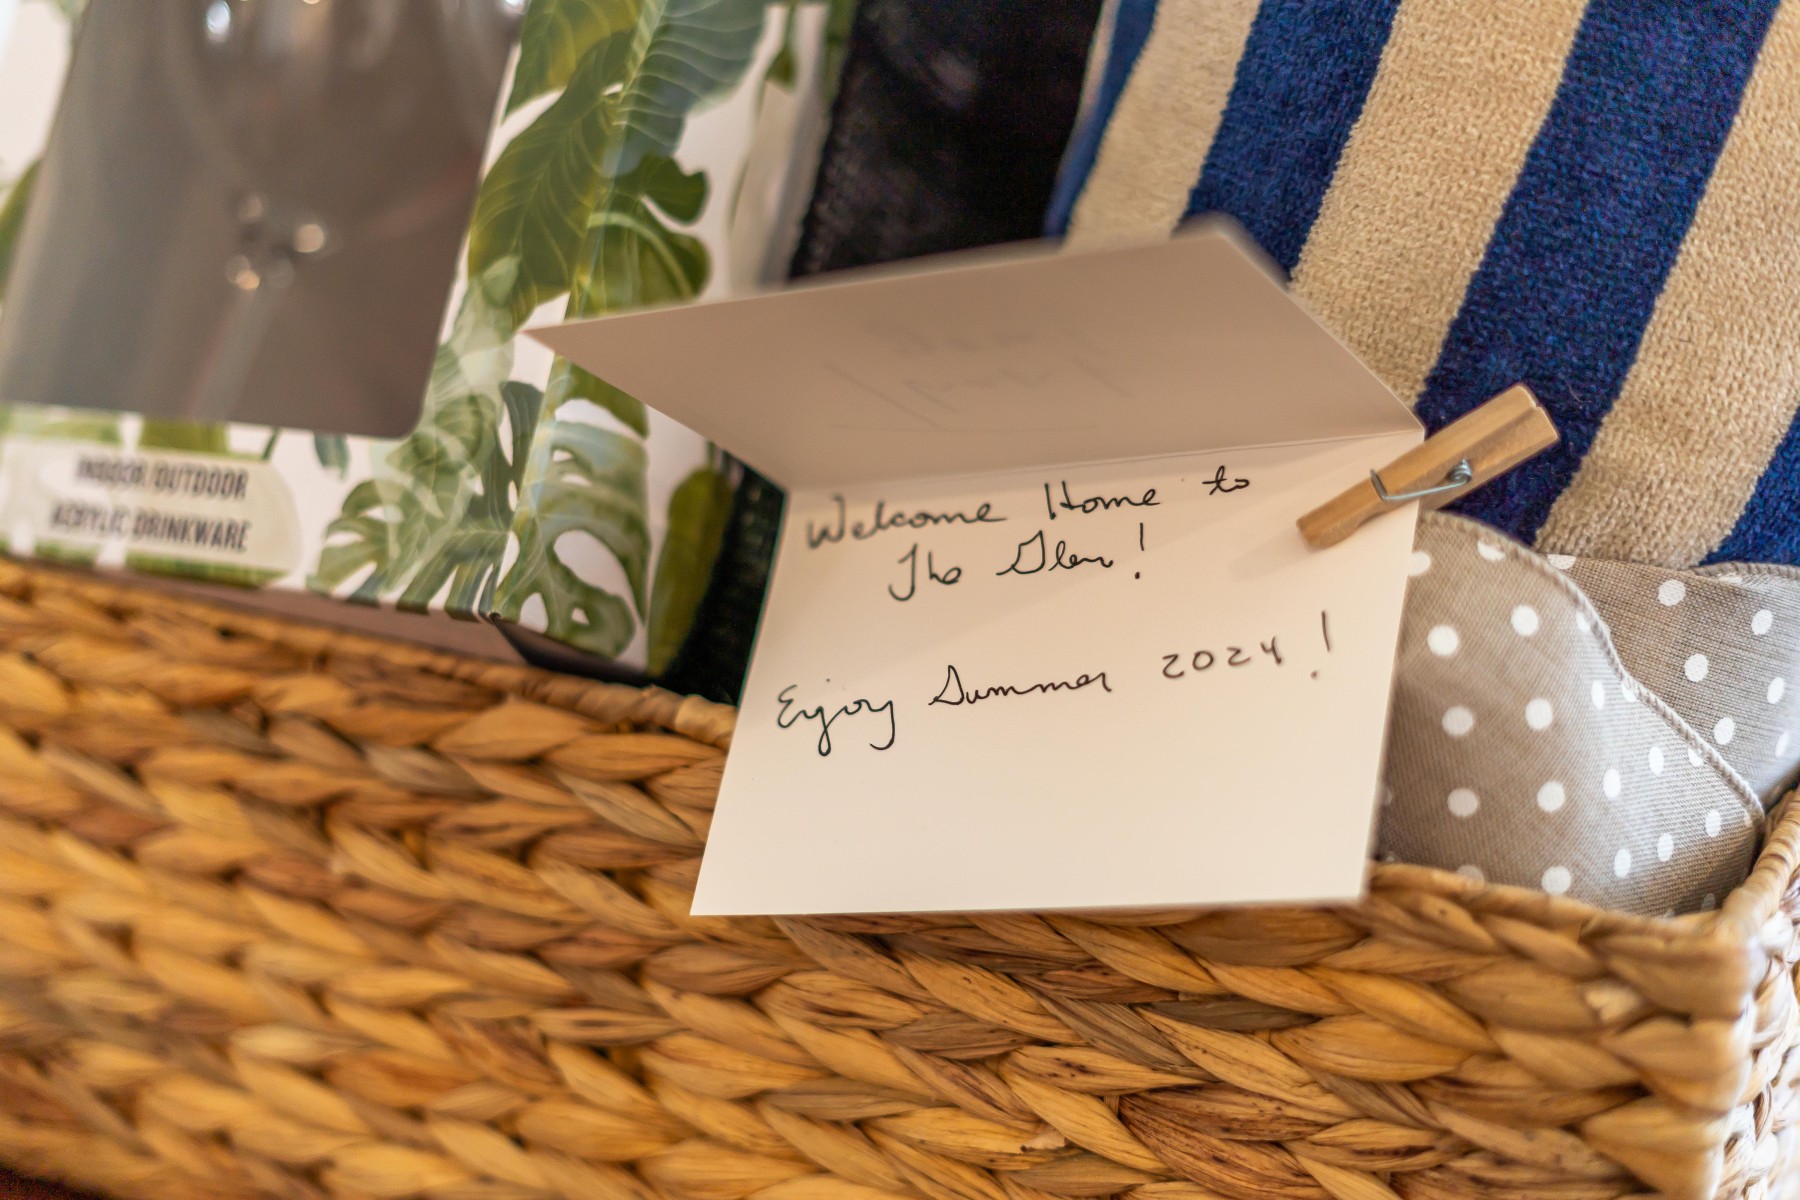 INDOOR/OUTDOOR
ACRYLIC DRINKWARE
Welcome Home to
The Glen!
Enjoy Summer 2024!